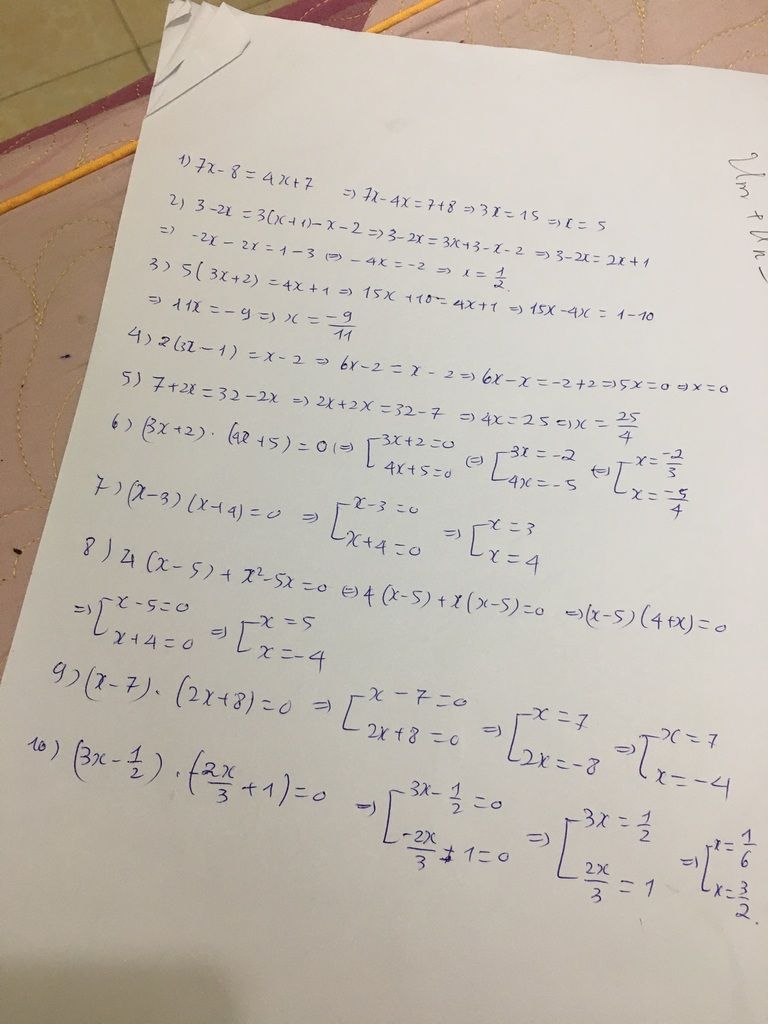 1) 7x - 8 = 4x + 7 => 7x - 4x = 7 + 8 => 3x = 15 => x = 5
2) 3 - 2x = 3(x + 1) - x - 2 => 3 - 2x = 3x + 3 - x - 2 => 3 - 2x = 2x + 1
=> -2x - 2x = 1 - 3 <=> -4x = -2 => x = 1/2.
3) 5(3x + 2) = 4x + 1 => 15x + 10 = 4x + 1 => 15x - 4x = 1 - 10
=> 11x = -9 => x = -9/11
4) 2(3x - 1) = x - 2 => 6x - 2 = x - 2 => 6x - x = -2 + 2 => 5x = 0 => x = 0
5) 7 + 2x = 32 - 2x => 2x + 2x = 32 - 7 => 4x = 25 => x = 25/4
6) (3x + 2) . (4x + 5) = 0 <=> [ 3x + 2 = 0 <=> [ 3x = -2 <=> [ x = -2/3
4x + 5 = 0 4x = -5 x = -5/4
7) (x - 3) (x + 4) = 0 => [ x - 3 = 0 => [ x = 3
x + 4 = 0 x = 4
8) 4 (x - 5) + x² - 5x = 0 <=> 4 (x - 5) + x (x - 5) = 0 => (x - 5) (4 + x) = 0
=> [ x - 5 = 0 => [ x = 5
x + 4 = 0 x = -4
9) (x - 7) . (2x + 8) = 0 => [ x - 7 = 0 => [ x = 7 => [ x = 7
2x + 8 = 0 2x = -8 x = -4
10) (3x - 1/2) . (-2x/3 + 1) = 0 => [ 3x - 1/2 = 0 => [ 3x = 1/2 => [ x = 1/6
-2x/3 + 1 = 0 2x/3 = 1 x = 3/2.